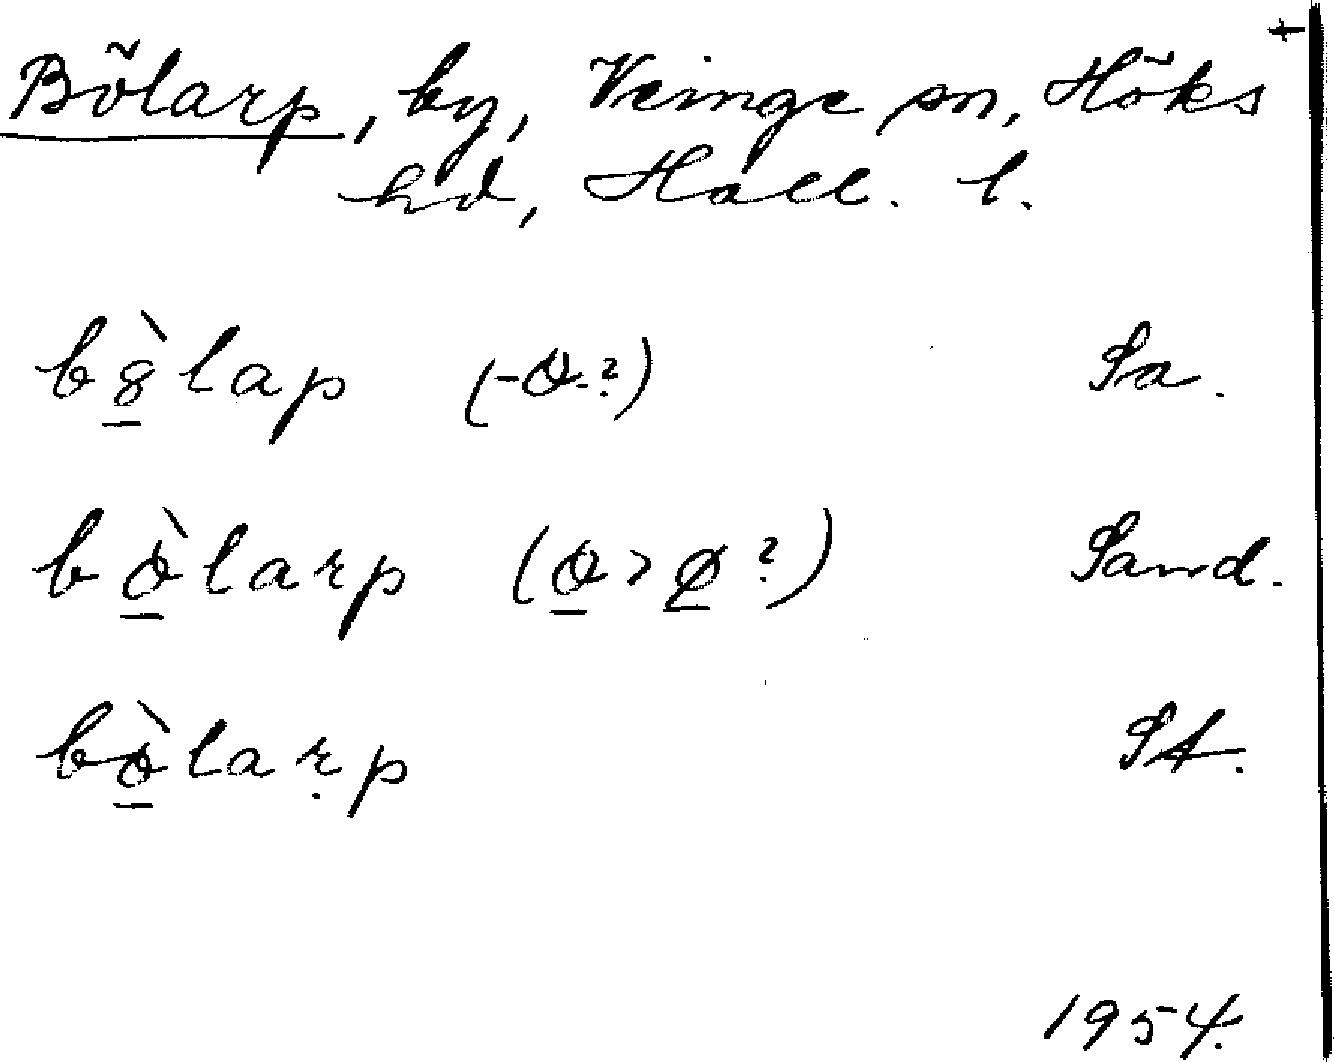 Bölarp, by, Veinge sn, Höks
hd, Hall. l.
bö̀lap Sa.
bö̀larp Sand.
bö̀larp St.
1954.